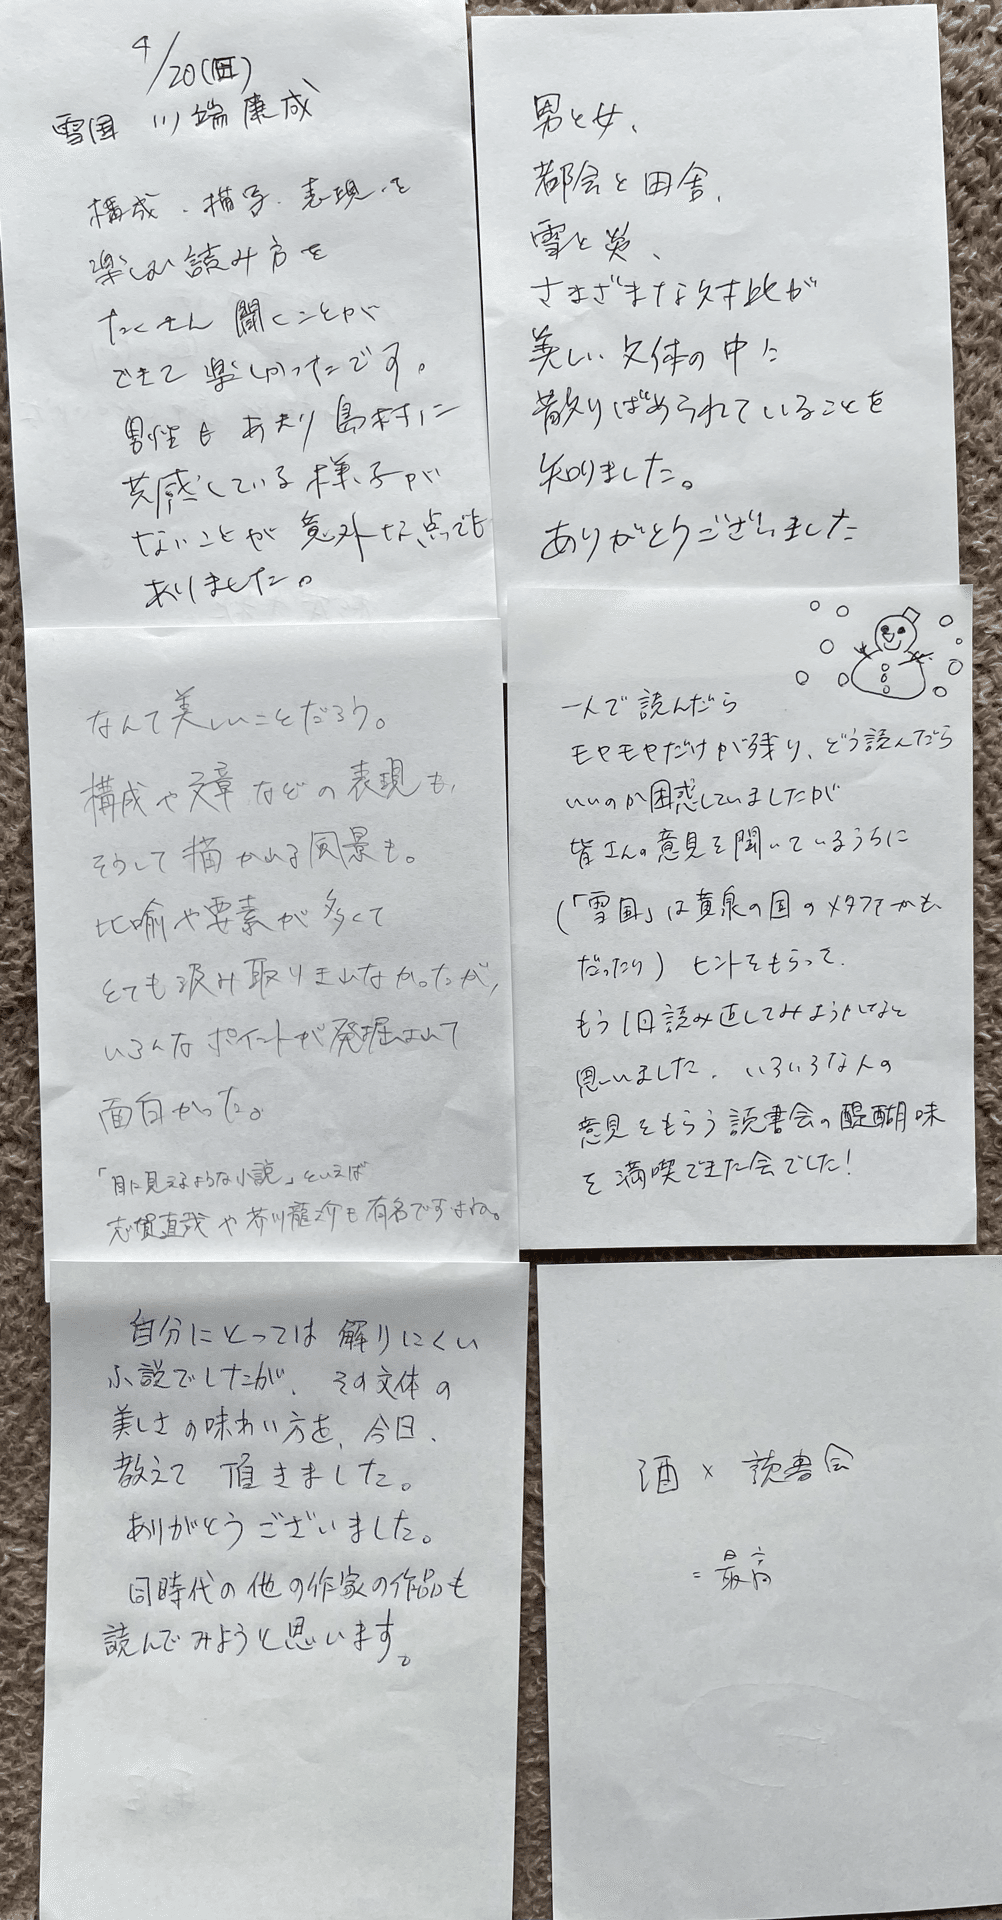 4/20(日)
雪国 川端康成
構成、描写、表現を
楽しむ読み方を
たくさん聞くことが
できて楽しかったです。
男性もあまり島村に
共感している様子が
ないことが意外な点でも
ありました。
男と女、
都会と田舎、
雪と炎、
さまざまな対比が
美しい文体の中に
散りばめられていることを
知りました。
ありがとうございました
なんて美しいことだろう。
構成や文章などの表現も、
そして描かれる風景も。
比喩や要素が多くて
とても汲み取りきれなかったが、
いろんなポイントが発掘されて
面白かった。
「目に見えるような小説」といえば
志賀直哉や芥川龍之介も有名ですよね。
一人で読んだら
モヤモヤだけが残り、どう読んだら
いいのか困惑していましたが
皆さんの意見を聞いているうちに
(「雪国」は黄泉の国のメタファかも
だったり) ヒントをもらって、
もう1回読み直してみようかなと
思いました。いろいろな人の
意見をもらう読書会の醍醐味
を満喫できた会でした!
自分にとっては解りにくい
小説でしたが、その文体の
美しさの味わい方を、今日、
教えて頂きました。
ありがとうございました。
同時代の他の作家の作品も
読んでみようと思います。
酒 × 読書会
= 最高